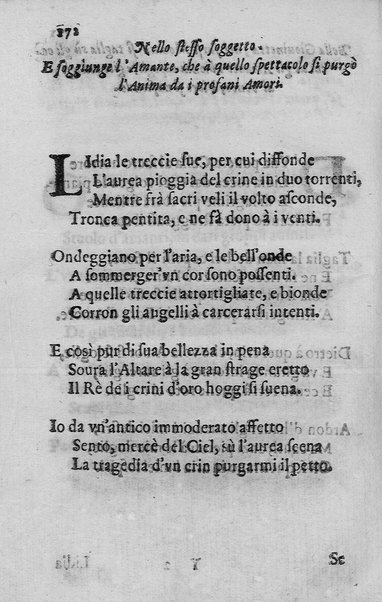 272
Nello stesso soggetto.
E soggiunge l'Amante, che à quello spettacolo si purgò
l'Anima da i profani Amori.
LIdia le treccie sue, per cui diffonde
L'aurea pioggia del crine in duo torrenti,
Mentre frà sacri veli il volto asconde,
Tronca pentita, e ne fà dono à i venti.
Ondeggiano per l'aria, e le bell'onde
A sommerger'vn cor sono possenti.
A quelle treccie attortigliate, e bionde
Corron gli augelli à carcerarsi intenti.
E così pur di sua bellezza in pena
Soura l'Altare à la gran strage eretto
Il Rè de i crini d'oro hoggi si suena.
Io da vn'antico immoderato affetto
Sento, mercè del Ciel, sù l'aurea scena
La tragedia d'vn crin purgarmi il petto.
Se